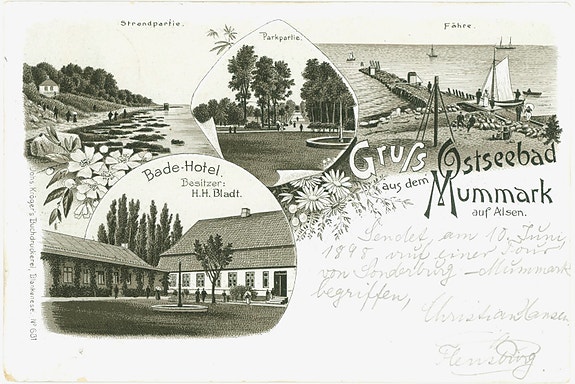 Strandpartie.
Parkpartie.
Fähre.
Gruß
aus dem
Ostseebad
Mummark
auf Alsen.
Bade-Hotel.
Besitzer:
H.H. Bladt.
Johs. Kröger's Buchdruckerei, Blankenese. No 691
Sendet, am 10. Juni,
1898 auf einer Tour
von Sonderburg - Mummark
begriffen,
Christian Hansen
Flensburg